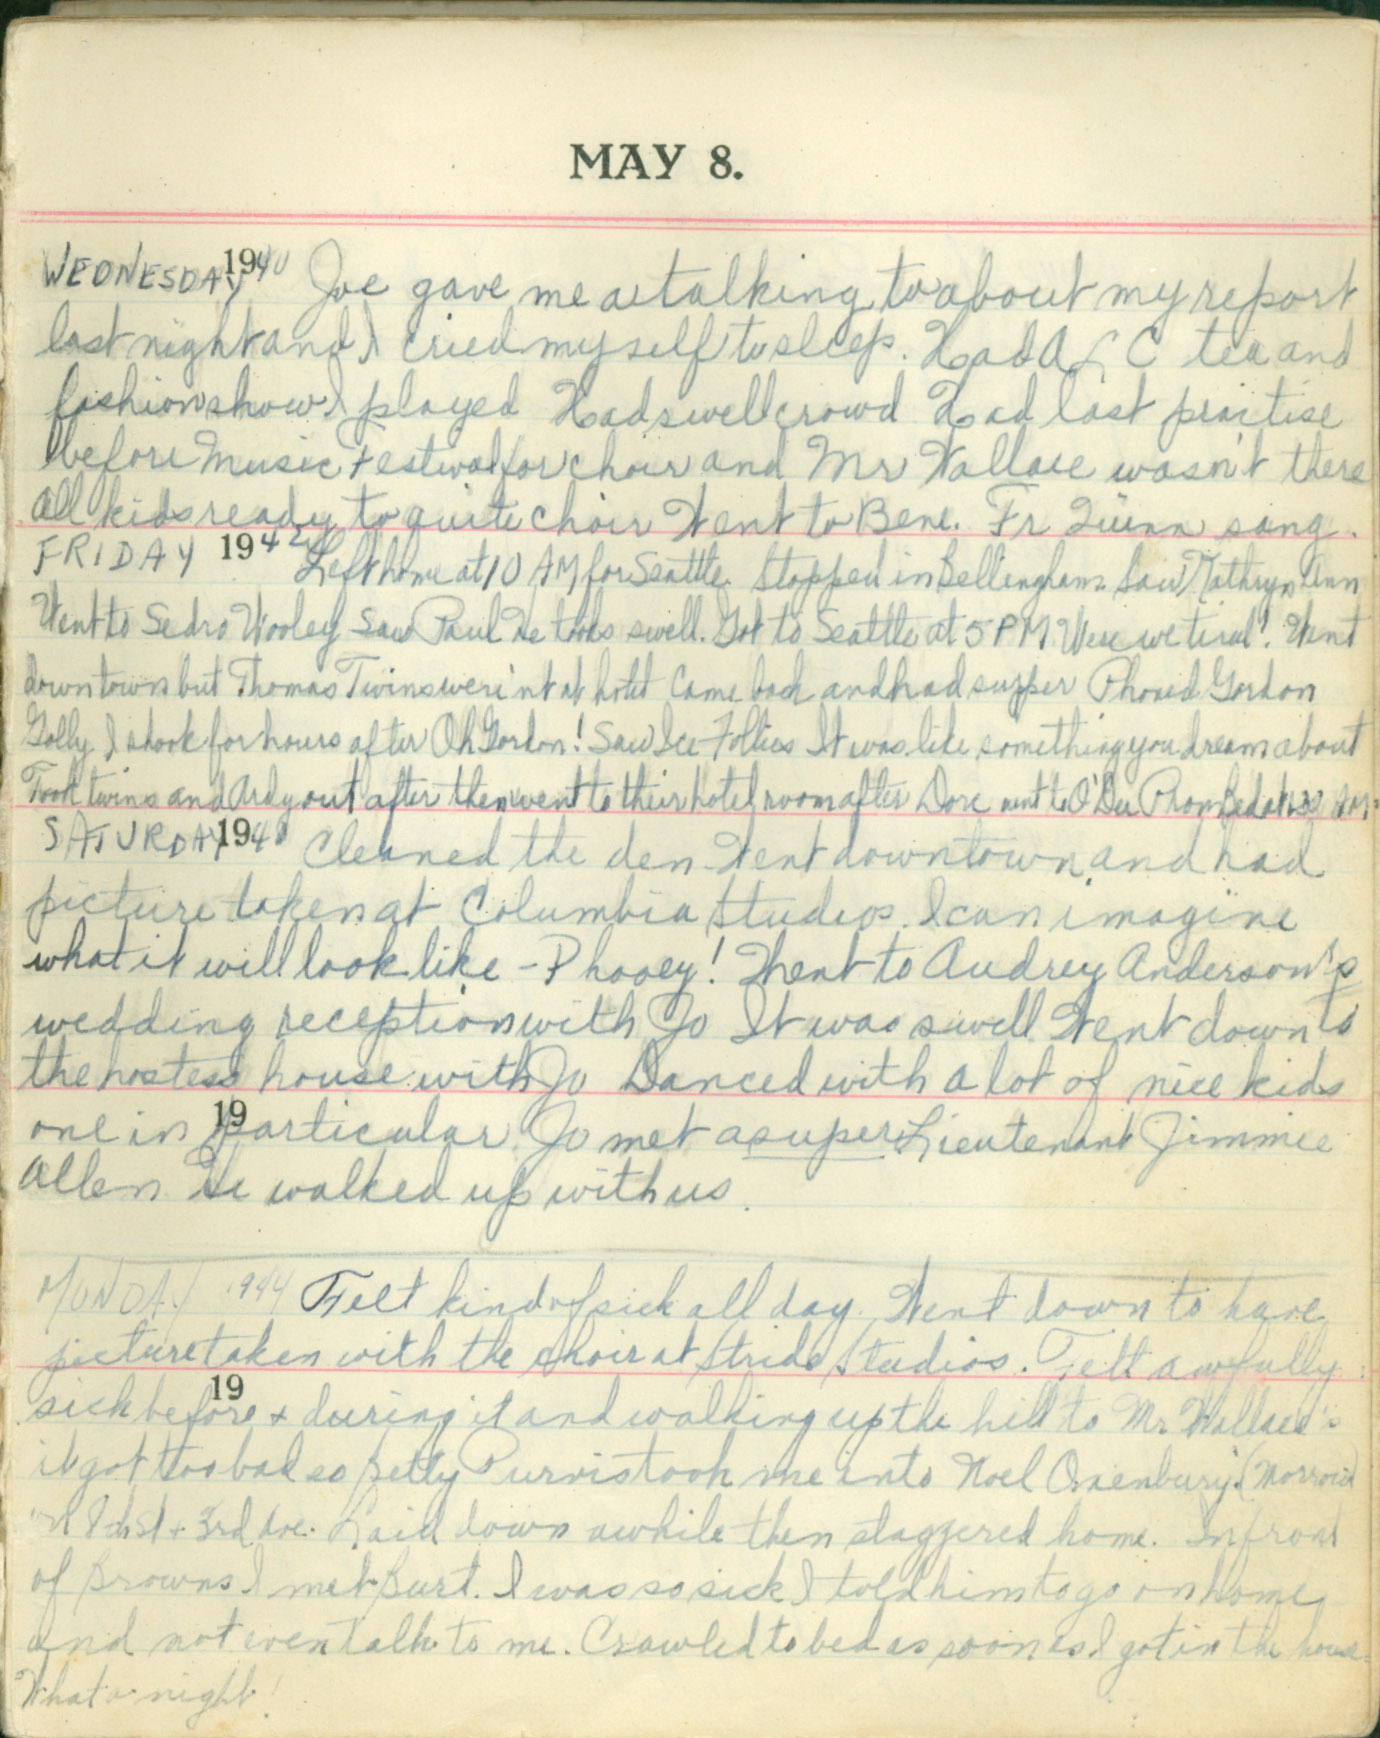 MAY 8.
WEDNESDAY 1940 Joe gave me a talking to about my report
last night and I cried myself to sleep. Had A L C tea and
fashion show I played Had swell crowd Had last practise
before Music Festival for choir and Mr Wallace wasn't there
All kids ready to quite choir Went to Bene. Fr Quinn sang.
FRIDAY 1942 Left home at 10 AM for Seattle. Stopped in Bellingham. Saw Kathryn Ann
Went to Sedro Wooley Saw Paul He looks swell. Got to Seattle at 5 PM Were we tired! Went
downtown but Thomas Twins were'nt at hotel Came back and had supper Phoned Gordon
Golly I shook for hours after Oh Gordon! Saw Ice Follies It was like something you dream about
Took twins and Ardy out after then went to their hotel room after Dore went to
SATURDAY 194 Cleaned the den. Went downtown and had
picture taken at Columbia Studios. I can imagine
what it will look like - Phooey! Went to Audrey Anderson's
wedding reception with Jo It was swell Went down to
the hostess house with Jo Danced with a lot of nice kids
19
one in particular. Jo met a super Lieutenant Jimmie
Allen He walked up with us.
MONDAY 1944 Felt kind of sick all day. Went down to have
picture taken with the choir at Stride Studios. Felt awfully
19
sick before + during it and walking up the hill to Mr Wallace's
it got too bad so Betty Purvis took me into Noel (Morrow
+ 3rd Ave. Laid down awhile then staggered home. In front
of Browns I met Burt. I was so sick I told him to go on home
and not even talk to me. Crawled to bed as soon as I got in the house.
What a night!